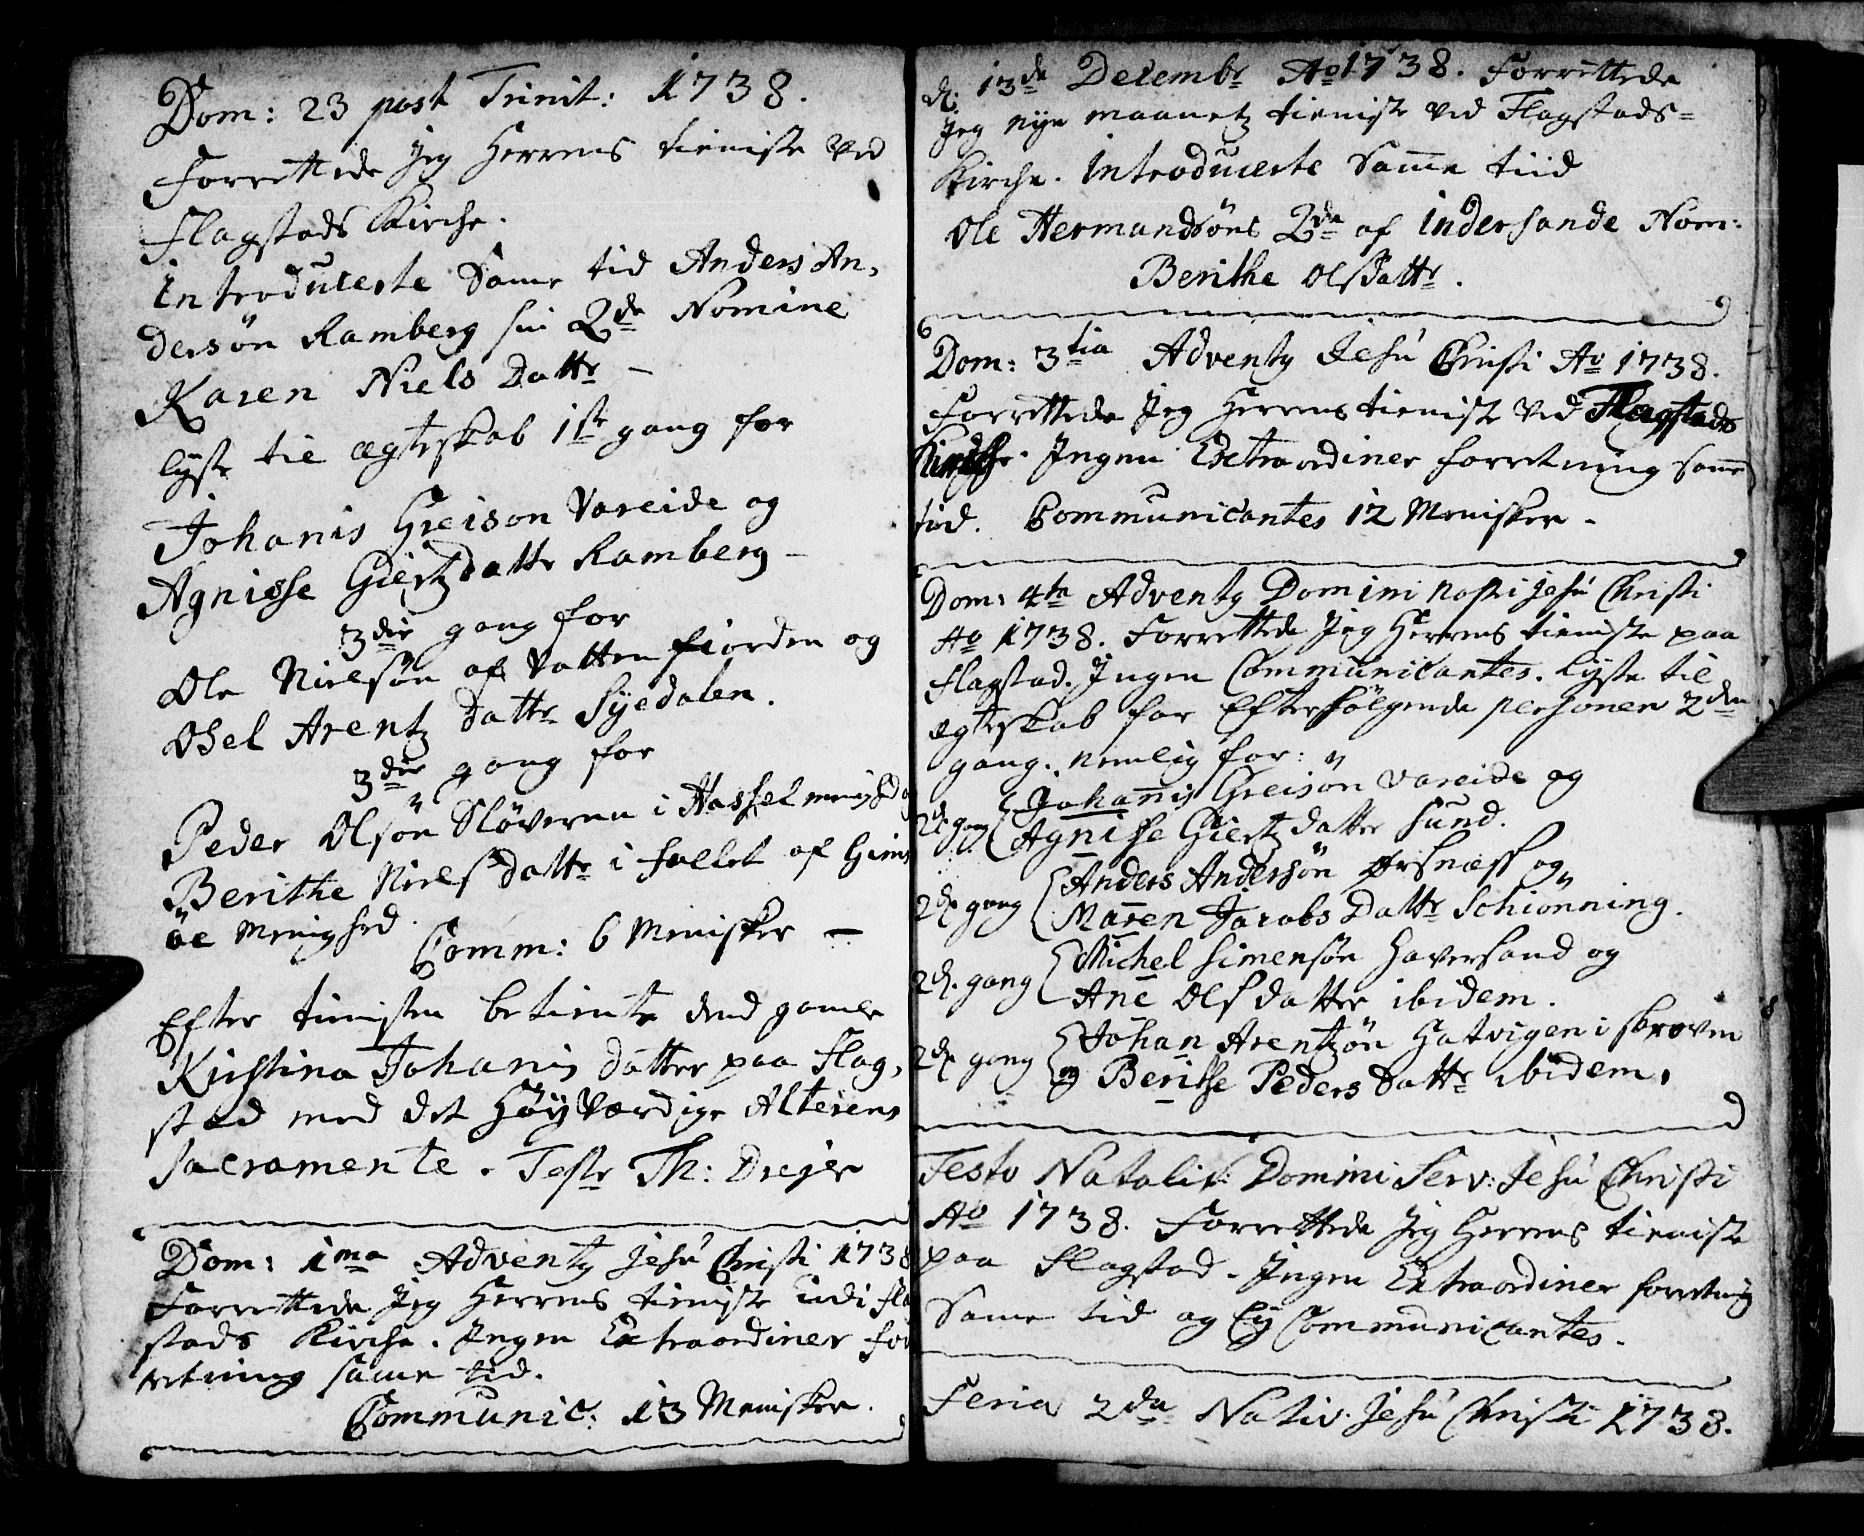 Dom: 23 post Trinit: 1738.
Forrettede Jeg Herrens tieniste ved
Flagstads Kirche.
Introduceste Same tid Anders An,
dersøn Ramberg sin 2de Nomine
Karen Niels Dattr –
lyste til ægteskab 1ste gang for
Johanis Greison Vareide og
Agnisse Giertz dattr Ramberg –
3die gang for
Ole Nielsøn af Vatten fiorden og
Osel Arentz dattr Syedalen.
3die gang for
Peder Olsøn Sløveren i Hassel menighed og
Berithe Niels dattr i fallet af Gims
öe Menighed.
Comm: 6 Menisker –
Efter tienisten betiente dend gamle
Kirstina Johanis datter paa Flag,
stad med det Høyværdige Alterens
Sacramente. Teste Th: Dreyer
Dom: 1ma Adventz Jesu Christi 1738
Forrettede Jeg Herrens tieniste udi Flag
stads Kirche. Ingen Extraordiner for
retning same tid.
Communic: 13 Menisker.
d. 13de Decembr Ao 1738. Forrettede
Jeg nye maanetz tieniste ved Flagstads=
Kirche. Introduceste Same tiid
Ole Hermandsøns 2de af Indersande Nom:
Berithe Olsdattr.
Dom: 3tia Adventz Jesu Christi Ao 1738.
Forrettede Jeg Herrens tieniste ved Flagstads
Kirche. Ingen Extraordiner forretning same
tid. Communicantes 12 Menisker –
Dom: 4ta Adventz Domini nostri Jesu Christi
Ao 1738. Forrettede Jeg Herrens tieniste paa
Flagstad. Ingen Communicantes. Lyste til
egteskab for Efterfølgende personer 2den
gang. nemlig for:
Johanis Greisön Vareide og
2d. gang Agnisse Giertz datter Sund.
Anders Andersön Ørsnæss og
2d. gang Maren Jacobs Dattr Schiönning.
Michel Simensøn Haversand og
2d. gang Ane Ols datter ibidem.
Johan Arentzön Hatvigen i Skroven
2d. gang og Berithe Peders Dattr ibidem.
Festo Natalit: Domini Serv: Jesu Christi
Ao 1738. Forrettede Jeg Herrens tieniste
paa Flagstad. Ingen Extraordiner forretning
Same tid og Ey Communicantes.
Feria 2da Nativ. Jesu Christi 1738.